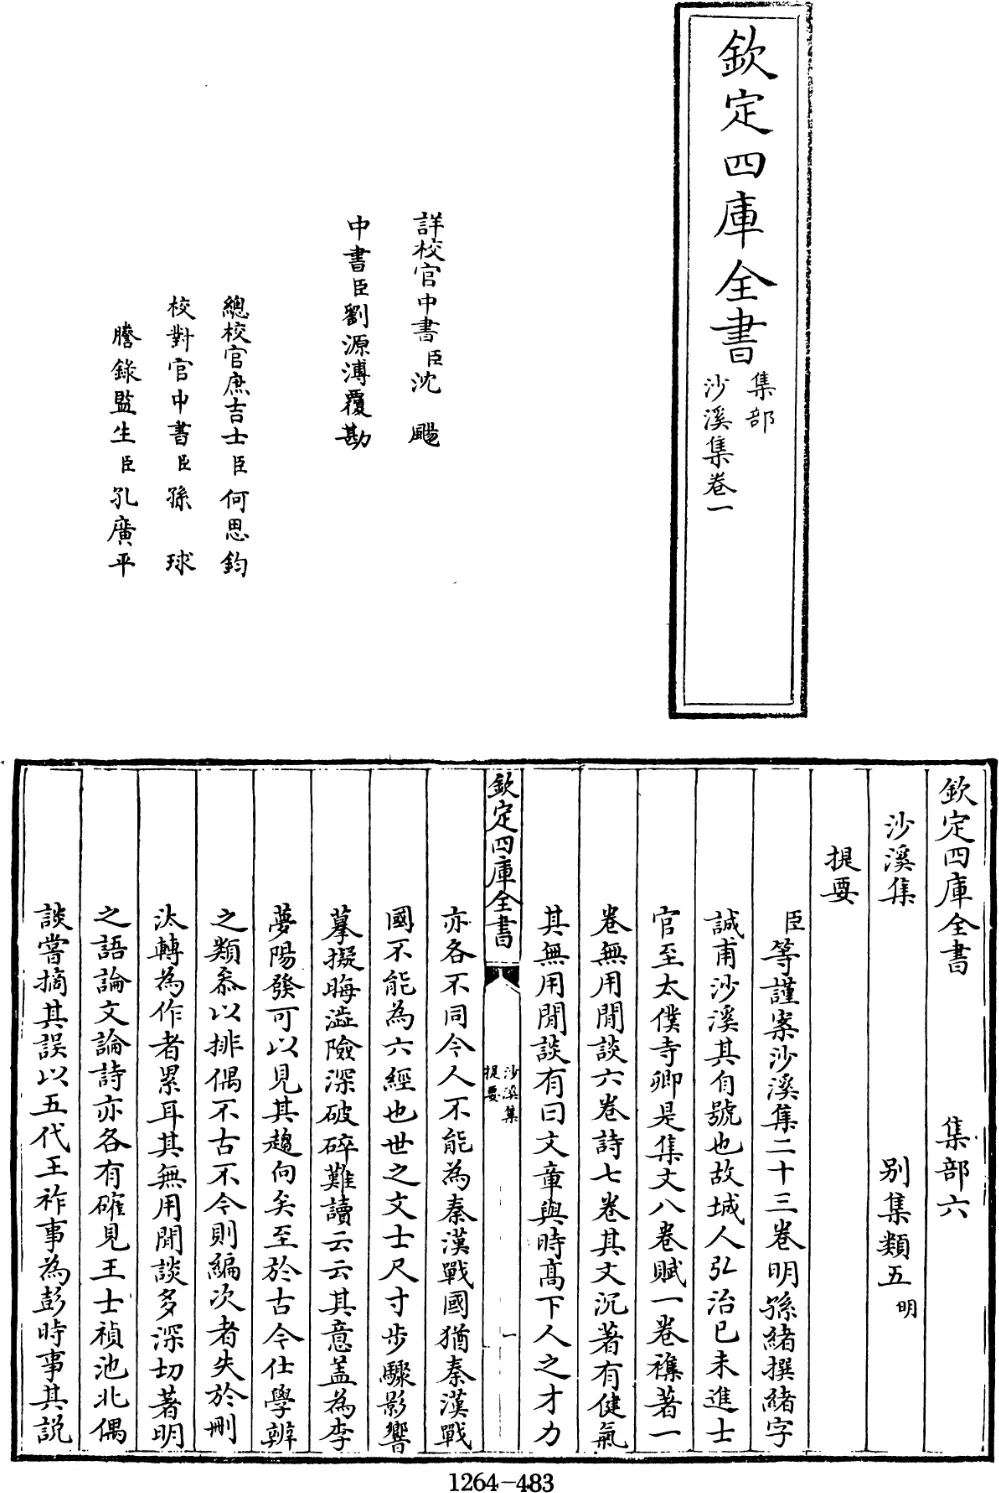 欽定四庫全書
集部
沙溪集卷一
詳校官中書臣沈颺
中書臣劉源溥覆勘
總校官庶吉士臣何思鈞
校對官中書臣孫球
謄錄監生臣孔廣平
欽定四庫全書 集部六
沙溪集 别集類五明
提要
臣等謹案沙溪集二十三卷明孫緒撰緒字
誠甫沙溪其自號也故城人弘治己未進士
官至太僕寺卿是集文八卷賦一卷襍著一
卷無用閒談六卷詩七卷其文沉著有健氣
其無用閒談有曰文章與時高下人之才力
欽定四庫全書
沙溪集
提要
一
亦各不同今人不能為秦漢戰國猶秦漢戰
國不能為六經也世之文士尺寸步驟影響
摹擬晦澁險深破碎難讀云云其意盖為李
夢陽發可以見其趨向矣至於古今仕學辨
之類叅以排偶不古不今則編次者失於刪
汰轉為作者累耳其無用閒談多深切著明
之語論文論詩亦各有確見王士禎池北偶
談嘗摘其誤以五代王祚事為彭時事其説
1264-483